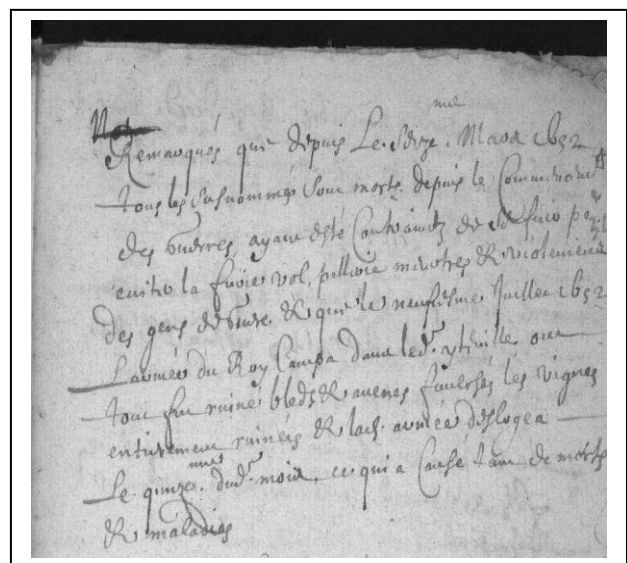 Remarqués que depuis Le Seize.me Mars 1652
tous les susnommés sont morts depuis le Commencemt
des guerres, ayant esté Contraints de s'enfuir por
eviter la furie vol, pillerie meurtres & violements
des gens de guerre & que le neufiesme Juillet 1652
L'armée du Roy Campa dans led.
tout fut ruiné bleds & avenes les vignes
entierement ruinées & lad. armée deslogea
Le quinze.me dud. mois, ce qui a Causé tant de morts
& maladies